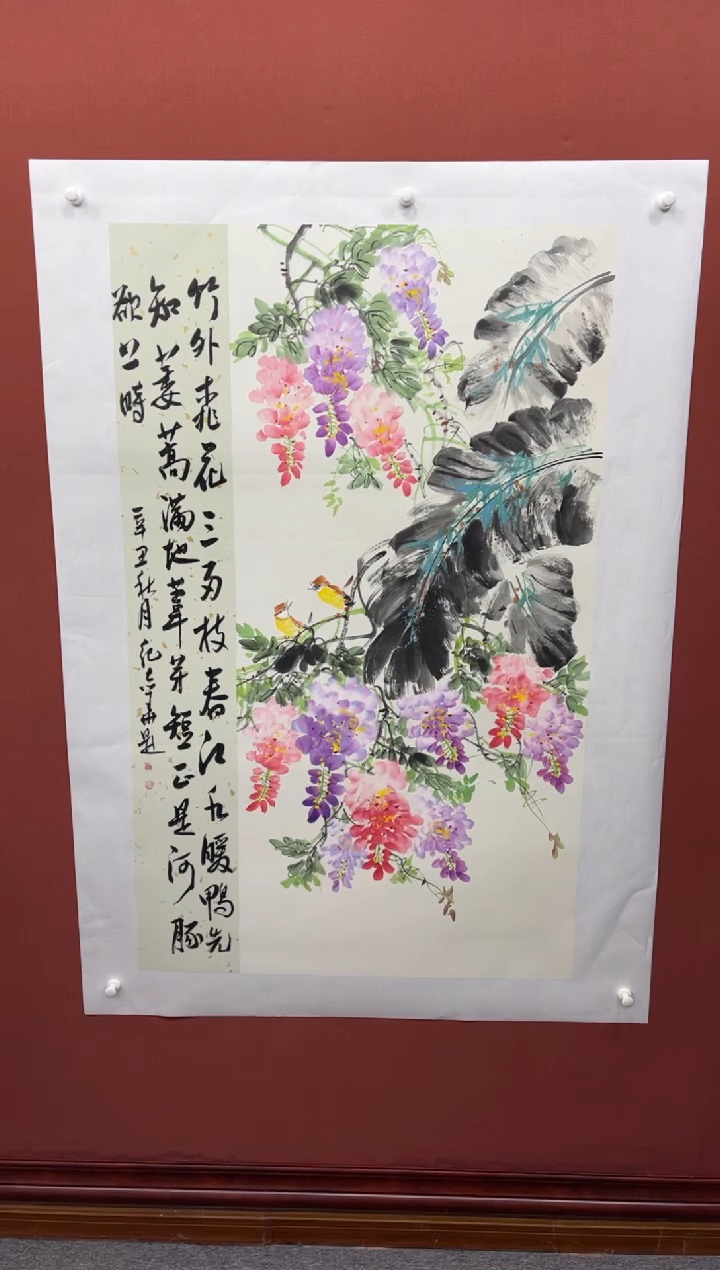 竹外桃花三两枝春江水暖鸭先
知蒌蒿满地芦芽短正是河豚
欲上時
辛丑秋月